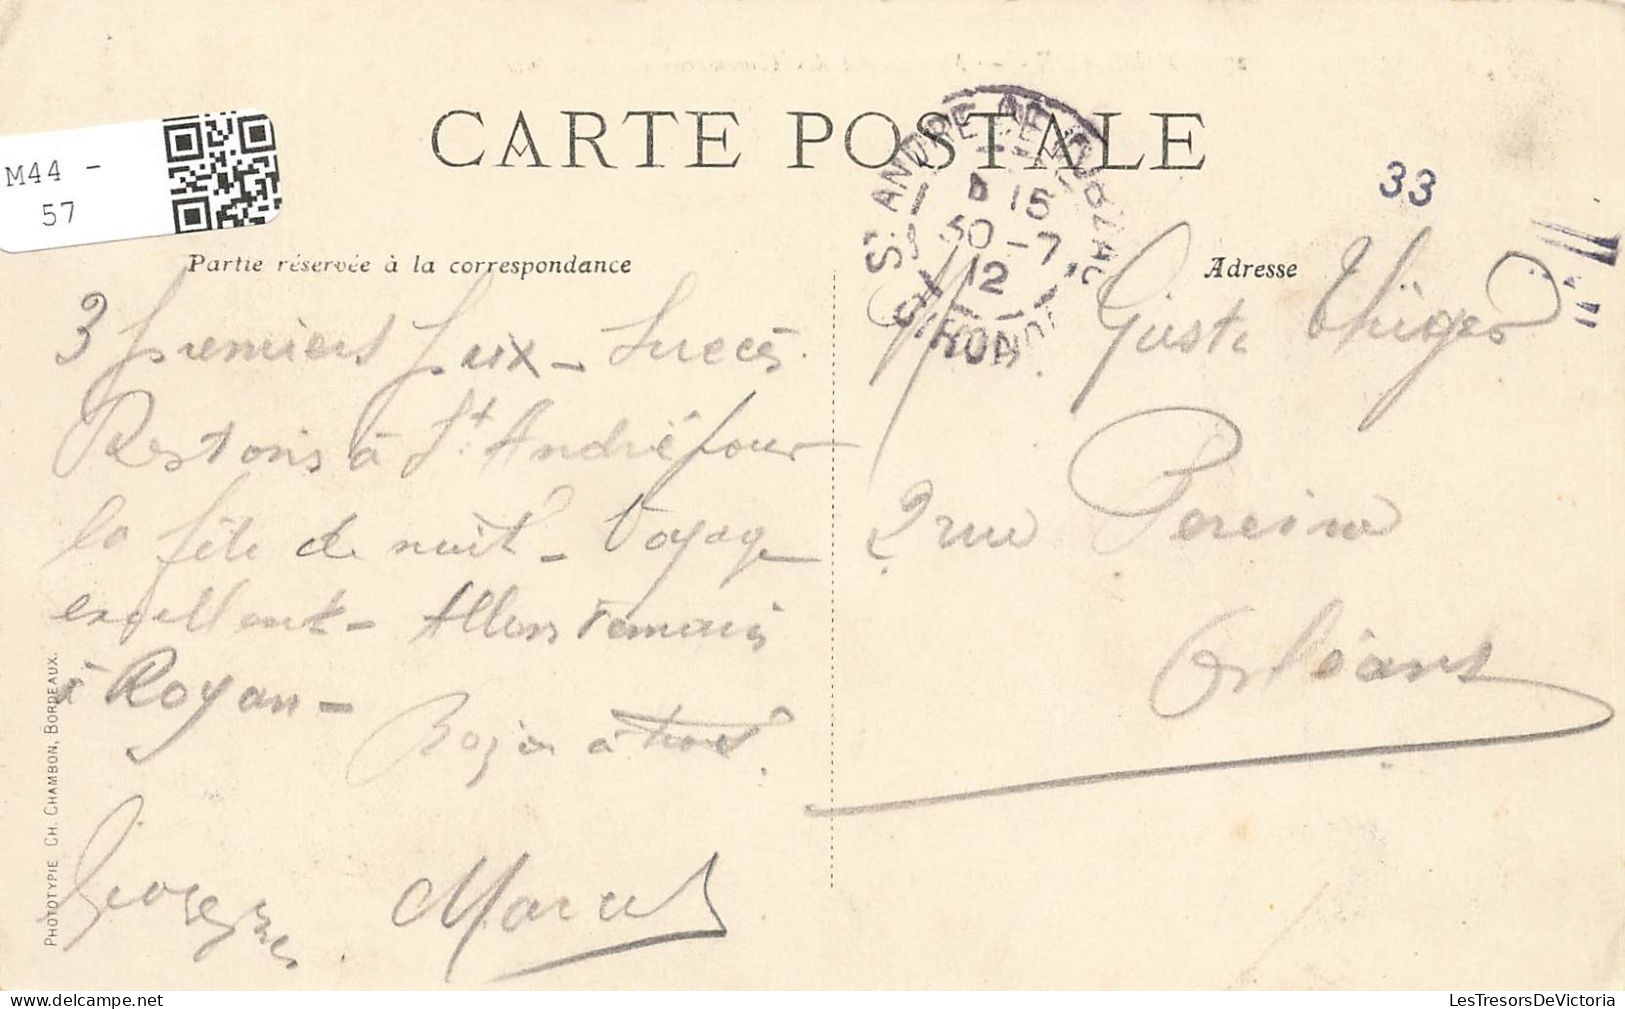 CARTE POSTALE
M44 -
57
33
Partie réservée à la correspondance
Adresse
ST ANDRE-DE-CUBZAC
15
30-7
12
GIRONDE
3 premiers prix - Succès.
Restons à St. André pour
la fête de nuit - Voyage
excellent - Allons demain
à Royan -
à tous
Georges. Marcel
2 rue
Orléans
PHOTOTYPIE CH. CHAMBON, BORDEAUX.
delcampe.net
LesTresorsDeVictoria